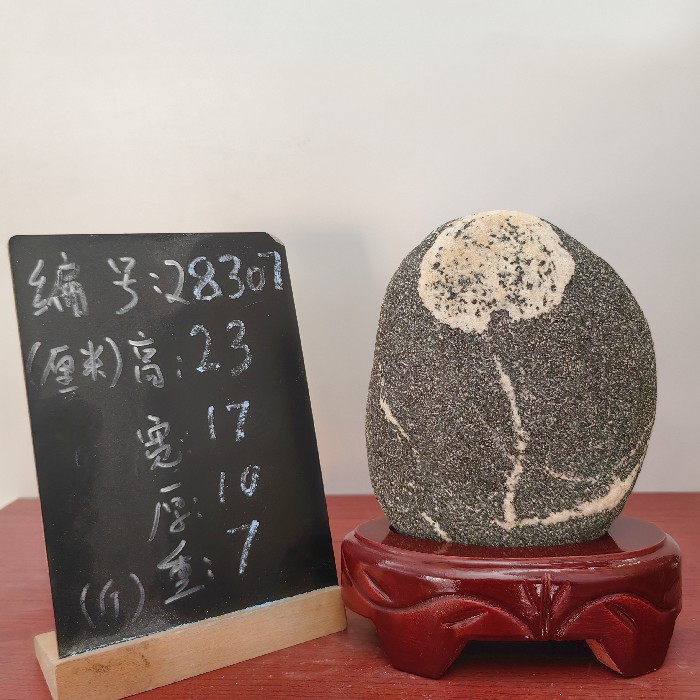 编号:28307
(厘米)高:23
宽:17
厚:10
(斤)重:7